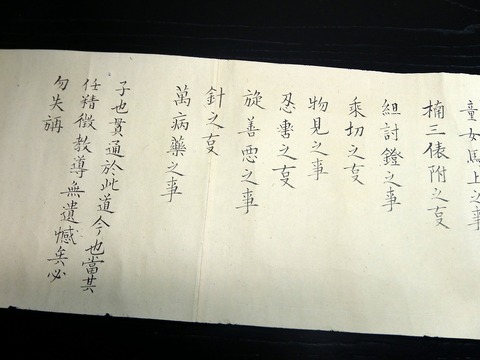 童女馬上之事
楠三俵附之事
組討鐙之事
乗切之事
物見之事
忍書之事
旋善悪之事
針之事
萬病薬之事
子也貫通於此道今也當其
任精徴教導無遺憾矣必
勿失講